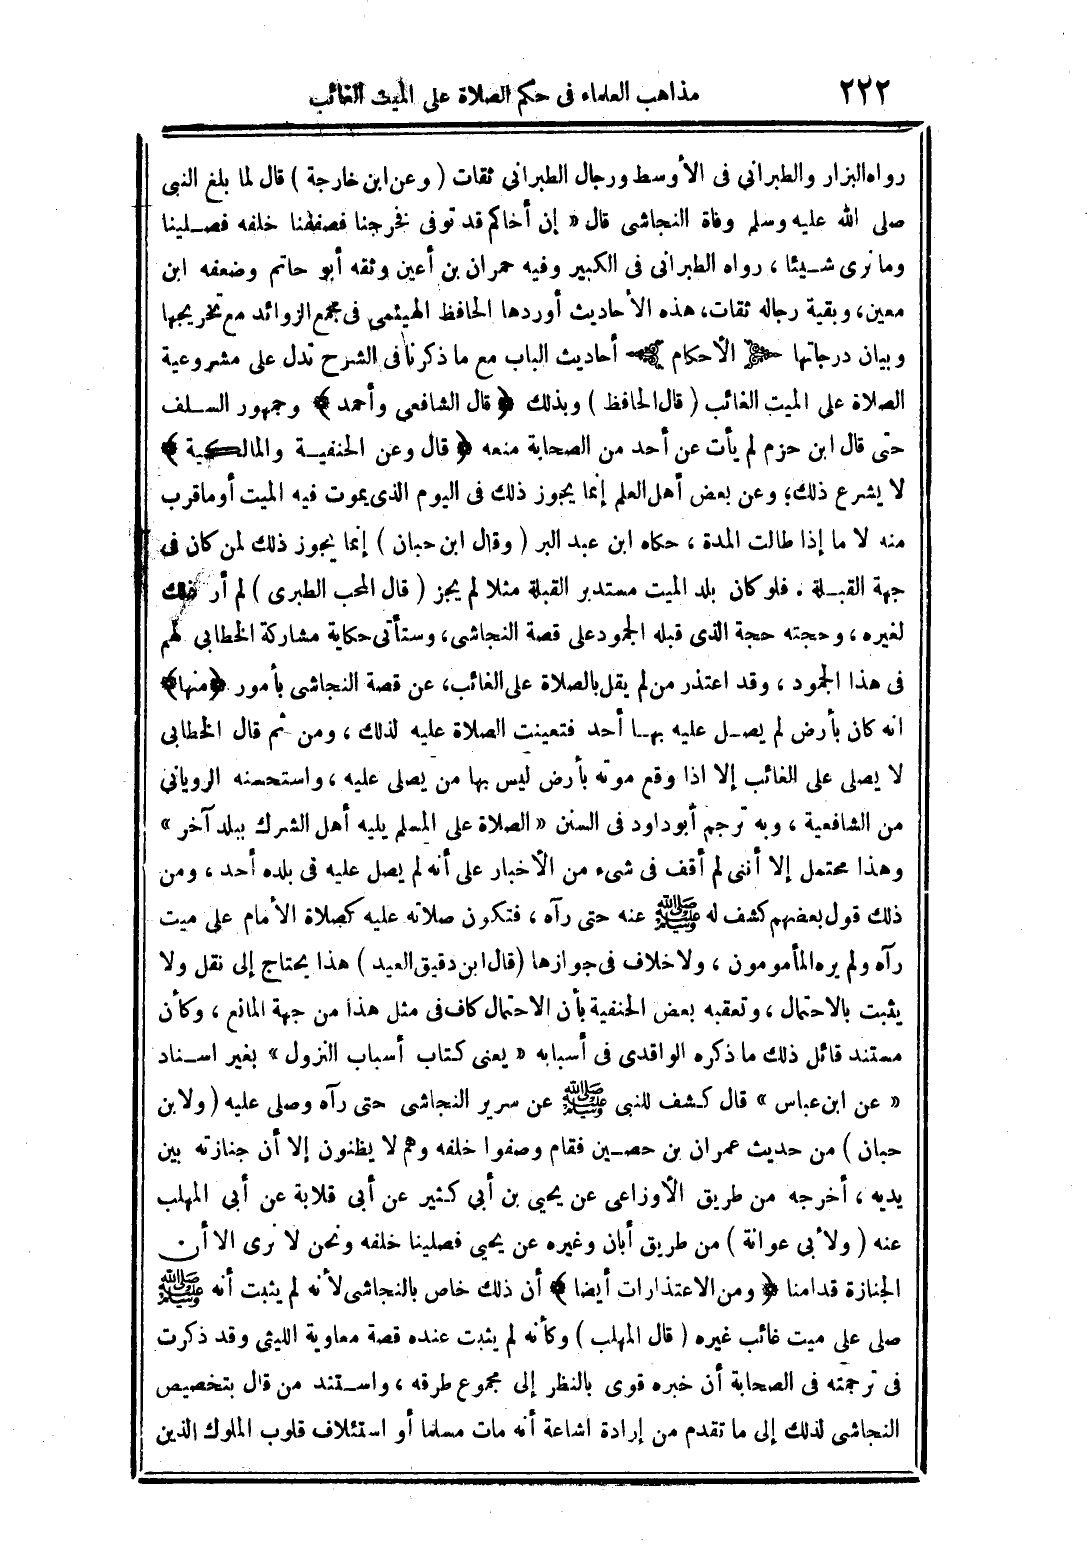 ٢٢٢ مذاهب العلماء فى حكم الصلاة على الميت الغائب
رواه البزار والطبرانى فى الأوسط ورجال الطبرانى ثقات ( وعن ابن خارجة ) قال لما بلغ النبى
صلى الله عليه وسلم وفاة النجاشى قال « إن أخاكم قد توفى فخرجنا فصففنا خلفه فصلينا
وما نرى شيئا ، رواه الطبرانى فى الكبير وفيه حمران بن أعين وثقه أبو حاتم وضعفه ابن
معين، وبقية رجاله ثقات، هذه الأحاديث أوردها الحافظ الهيثمى فى مجمع الزوائد مع تخريجها
وبيان درجاتها الأحكام أحاديث الباب مع ما ذكرنا فى الشرح تدل على مشروعية
الصلاة على الميت الغائب ( قال الحافظ ) وبذلك ﴿ قال الشافعى وأحمد ﴾ وجمهور السلف
حتى قال ابن حزم لم يأت عن أحد من الصحابة منعه ﴿ قال وعن الحنفية والمالكية ﴾
لا يشرع ذلك؛ وعن بعض أهل العلم إنما يجوز ذلك فى اليوم الذى يموت فيه الميت أو ما قرب
منه لا ما إذا طالت المدة ، حكاه ابن عبد البر ( وقال ابن حبان ) إنما يجوز ذلك لمن كان فى
جهة القبلة . فلو كان بلد الميت مستدبر القبلة مثلا لم يجز ( قال المحب الطبرى ) لم أر ذلك
لغيره ، وحجته حجة الذى قبله الجمود على قصة النجاشى، وستأتى حكاية مشاركة الخطابى لهم
فى هذا الجمود ، وقد اعتذر من لم يقل بالصلاة على الغائب، عن قصة النجاشى بأمور ﴿منها﴾
انه كان بأرض لم يصل عليه بها أحد فتعينت الصلاة عليه لذلك ، ومن ثم قال الخطابى
لا يصلى على الغائب إلا اذا وقع موته بأرض ليس بها من يصلى عليه ، واستحسنه الرويانى
من الشافعية ، وبه ترجم أبو داود فى السنن « الصلاة على المسلم يليه أهل الشرك ببلد آخر »
وهذا محتمل إلا أننى لم أقف فى شىء من الأخبار على أنه لم يصل عليه فى بلده أحد ، ومن
ذلك قول بعضهم كشف له ﷺ عنه حتى رآه ، فتكون صلاته عليه كصلاة الأمام على ميت
رآه ولم يره المأمومون ، ولا خلاف فى جوازها (قال ابن دقيق العيد ) هذا يحتاج إلى نقل ولا
يثبت بالاحتمال ، وتعقبه بعض الحنفية بأن الاحتمال كاف فى مثل هذا من جهة المانع ، وكأن
مستند قائل ذلك ما ذكره الواقدى فى أسبابه « يعنى كتاب أسباب النزول » بغير اسناد
« عن ابن عباس » قال كشف للنبى ﷺ عن سرير النجاشى حتى رآه وصلى عليه ( ولابن
حبان ) من حديث عمران بن حصين فقام وصفوا خلفه وهم لا يظنون إلا أن جنازته بين
يديه ، أخرجه من طريق الأوزاعى عن يحيى بن أبي كثير عن أبى قلابة عن أبى المهلب
عنه ( ولأبى عوانة ) من طريق أبان وغيره عن يحيى فصلينا خلفه ونحن لا نرى الا أن
الجنازة قدامنا ﴿ ومن الاعتذارات أيضا ﴾ أن ذلك خاص بالنجاشى لأنه لم يثبت أنه ﷺ
صلى على ميت غائب غيره ( قال المهلب ) وكأنه لم يثبت عنده قصة معاوية الليثى وقد ذكرت
فى ترجمته فى الصحابة أن خبره قوى بالنظر إلى مجموع طرقه ، واستند من قال بتخصيص
النجاشى لذلك إلى ما تقدم من إرادة اشاعة أنه مات مسلما أو استئلاف قلوب الملوك الذين